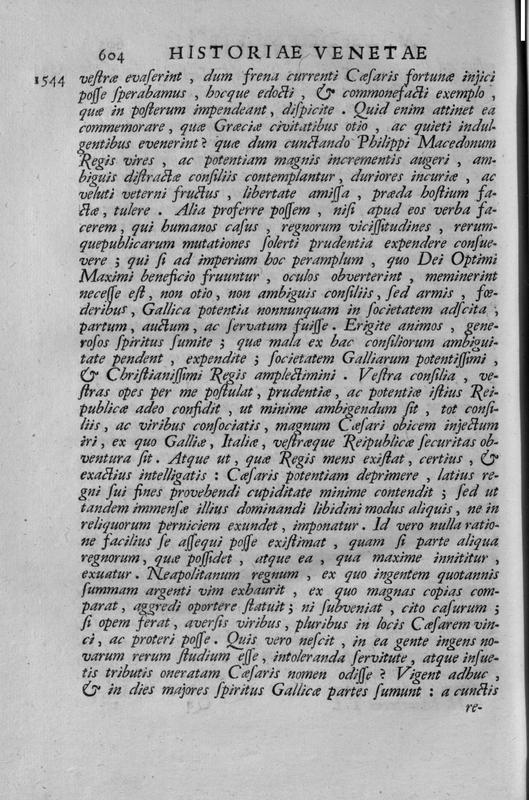 604 HISTORIAE VENETAE
1544 vestræ evaserint, dum frena currenti Cæsaris fortunæ injici
posse sperabamus, hocque edocti, & commonefacti exemplo,
quæ in posterum impendeant, dispicite. Quid enim attinet ea
commemorare, quæ Græciæ civitatibus otio, ac quieti indul-
gentibus evenerint? quæ dum cunctando Philippi Macedonum
Regis vires, ac potentiam magnis incrementis augeri, am-
biguis distractæ consiliis contemplantur, duriores incuriæ, ac
veluti veterni fructus, libertate amissa, præda hostium fa-
ctæ, tulere. Alia proferre possem, nisi apud eos verba fa-
cerem, qui humanos casus, regnorum vicissitudines, rerum-
quepublicarum mutationes solerti prudentia expendere consue-
vere; qui si ad imperium hoc peramplum, quo Dei Optimi
Maximi beneficio fruuntur, oculos obverterint, meminerint
necesse est, non otio, non ambiguis consiliis, sed armis, fœ-
deribus, Gallica potentia nonnunquam in societatem adscita,
partum, auctum, ac servatum fuisse. Erigite animos, gene-
rosos spiritus sumite; quæ mala ex hac consiliorum ambigui-
tate pendent, expendite; societatem Galliarum potentissimi,
& Christianissimi Regis amplectimini. Vestra consilia, ve-
stras opes per me postulat, prudentiæ, ac potentiæ istius Rei-
publicæ adeo confidit, ut minime ambigendum sit, tot consi-
liis, ac viribus consociatis, magnum Cæsari obicem injectum
iri, ex quo Galliæ, Italiæ, vestræque Reipublicæ securitas ob-
ventura sit. Atque ut, quæ Regis mens existat, certius, &
exactius intelligatis: Cæsaris potentiam deprimere, latius re-
gni sui fines provehendi cupiditate minime contendit; sed ut
tandem immensæ illius dominandi libidini modus aliquis, ne in
reliquorum perniciem exundet, imponatur. Id vero nulla ratio-
ne facilius se assequi posse existimat, quam si parte aliqua
regnorum, quæ possidet, atque ea, qua maxime innititur,
exuatur. Neapolitanum regnum, ex quo ingentem quotannis
summam argenti vim exhaurit, ex quo magnas copias com-
parat, aggredi oportere statuit; ni subveniat, cito casurum;
si opem ferat, aversis viribus, pluribus in locis Cæsarem vin-
ci, ac proteri posse. Quis vero nescit, in ea gente ingens no-
varum rerum studium esse, intoleranda servitute, atque insue-
tis tributis oneratam Cæsaris nomen odisse? Vigent adhuc,
& in dies majores spiritus Gallicæ partes sumunt: a cunctis
re-